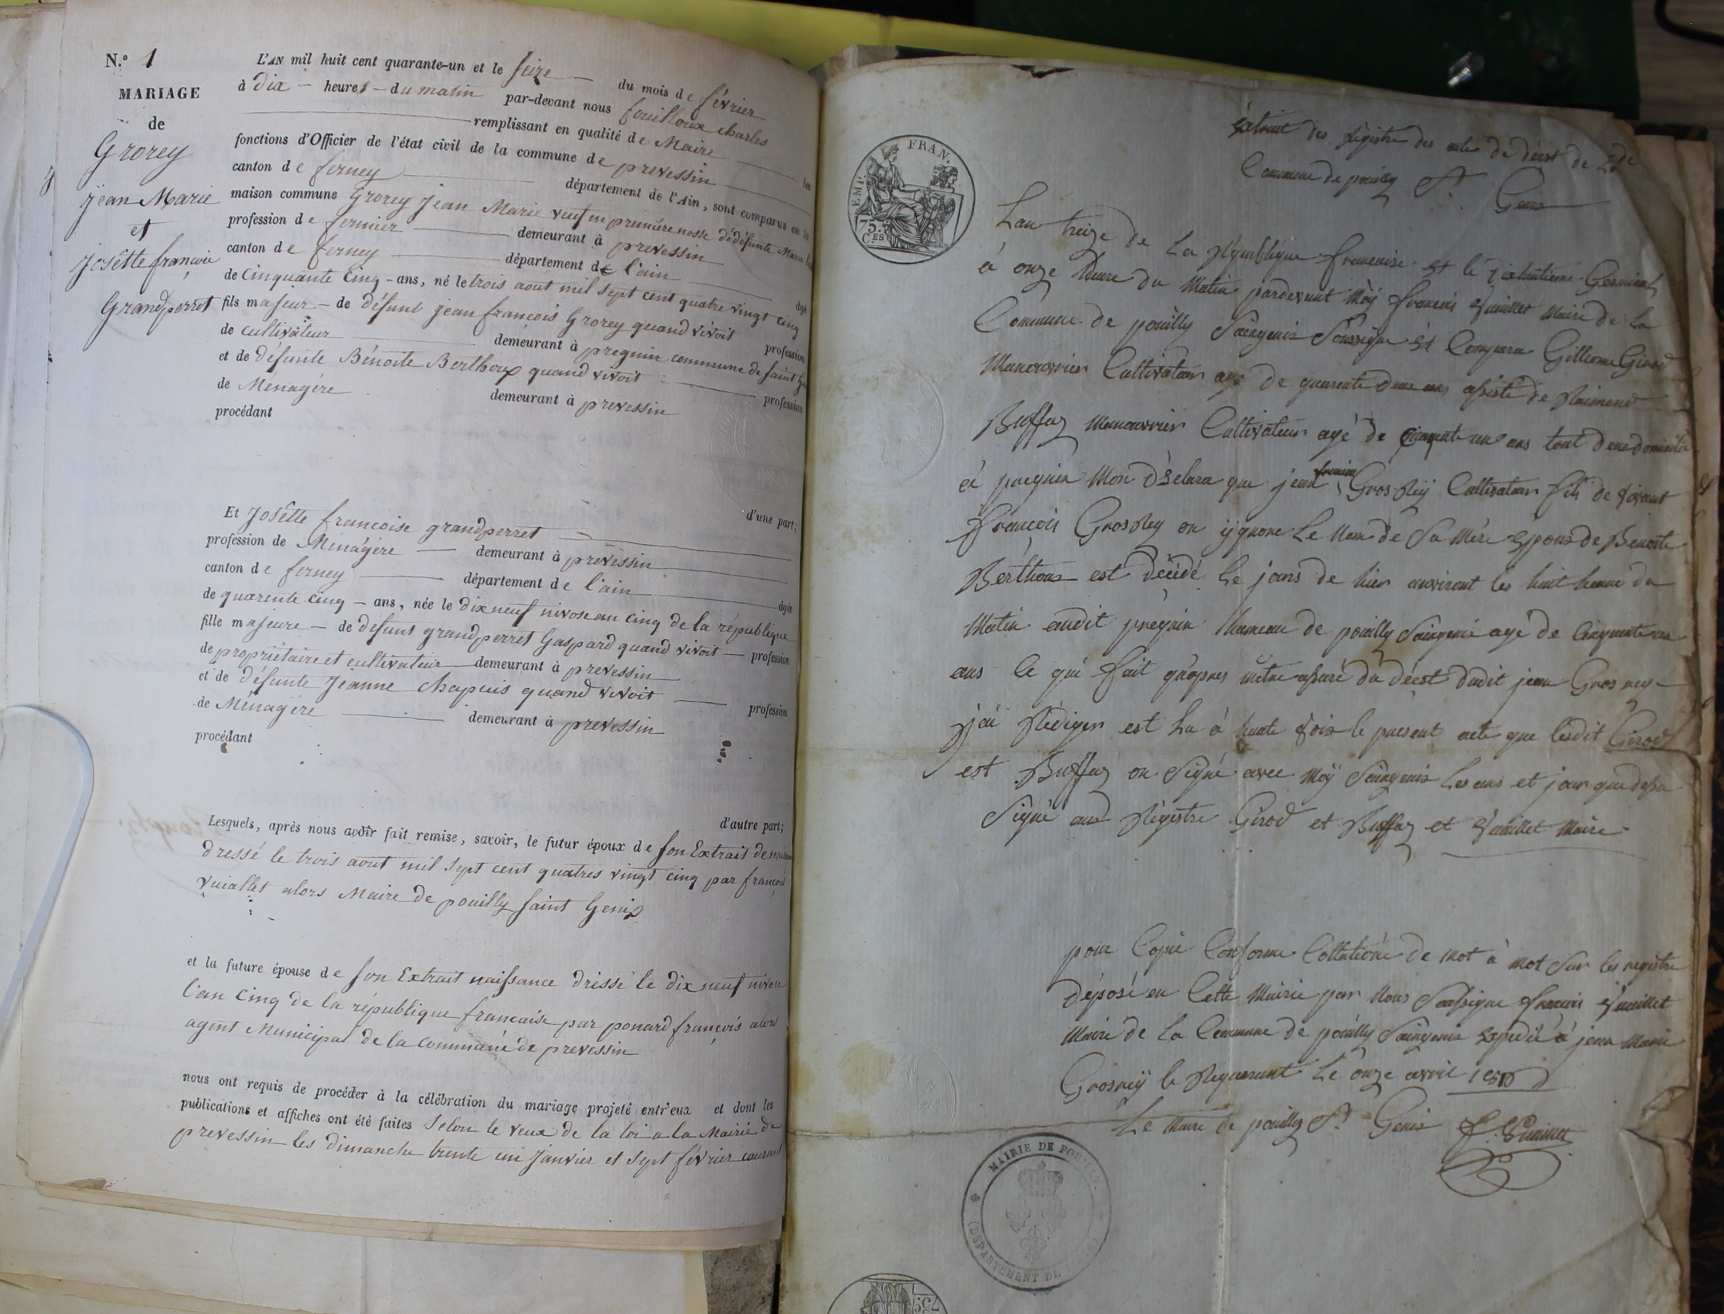 N.º 1
MARIAGE
de
Grorey
jean Marie
et
Josêtte françoise
Grandperret
L'AN mil huit cent quarante-un et le seize du mois de février
à dix heures du matin par-devant nous fouilloux charles
remplissant en qualité de Maire
fonctions d'Officier de l'état civil de la commune de prevessin
canton de ferney département de l'Ain, sont comparus en
maison commune Grorey jean Marie veuf en premiere nosse de défunte Maria
profession de fermier demeurant à prevessin
canton de ferney département de l'ain âgé
de Cinquante Cinq ans, né le trois aout mil sept cent quatre vingt cinq
fils majeur de défunt jean françois Grorey quand vivoit profession
de cultivateur demeurant à pregnin commune de saint
et de défunte Bénoite Berthoux quand vivoit profession
de Menagère demeurant à prevessin
procédant
d'une part;
Et Josêtte francoise grandperret
profession de Ménagère demeurant à prevessin
canton de ferney département de l'ain âgée
de quarente cinq ans, née le dix neuf nivose an cinq de la république
fille majeure de defunt grandperret Gaspard quand vivoit profession
de propriétaire et cultivateur demeurant à prevessin
et de défunte Jeanne Chapuis quand vivoit profession
de Ménagère demeurant à prevessin
procédant
d'autre part;
Lesquels, après nous avoir fait remise, savoir, le futur époux de son Extrait de
dressé le trois aout mil sept cent quatres vingt cinq par françois
vuiallet alors Maire de pouilly saint Genix
et la future épouse de son Extrait naissance dressé le dix neuf nivose
l'an cinq de la république francaise par ponard françois alors
agent Municipal de la commune de prevessin
nous ont requis de procéder à la célébration du mariage projeté entr'eux et dont les
publications et affiches ont été faites selon le veux de la loi a la Mairie de
prevessin les dimanche trente un Janvier et sept février courant
TIMB. FRAN.
75 Ces
Extrait des Registre des acte de décest de la
Commune de pouilly St. Genis
Lan treize de La République francaise et le dixhuitieme Germinal
à onze heure du Matin pardevant Moy francois Vuaillet Maire de la
Commune de pouilly Saingenis Soussigne Et Compara Gilliome Girod
Manouvrier Cultivateur agé de quarente deux ans assisté de Raimend
Buffaz Manouvrier Cultivateur agé de cinquante un ans tout deux domicilié
à pregnin Mon déclara que jean francois GrosRey Cultivateur fils de vivant
francois GrosRey on ygnore le Nom de Sa Mére Epoux de Benoite
Berthoux est décédé le jours de hier environt les huit heure du
Matin audit pregnin hameau de pouilly Saingenis agé de Cinquante
ans Ce qui fait qu'après mètre assuré du décest dudit jean Grosrey
j'ai Rédiger est Lu à haute voix le present acte que lesdit Girod
est Buffaz on Signé avec Moÿ Saingenis Les ans et jour que dessu
Signé aux Registre Girod et Buffaz et Vuaillet Maire
pour Copie Conforme Collationé de Mot à mot Sur les registre
déposé en Cette Mairie par Nous Soussigne francois Vuaillet
Maire de La Commune de pouilly Saingenis Expédié à jean Marie
Grosreÿ le Requerant Le onze avril 1810
Le Maire de pouilly St. Genis F. Vuaillet
MAIRIE DE POUILLY
DEPARTEMENT DE